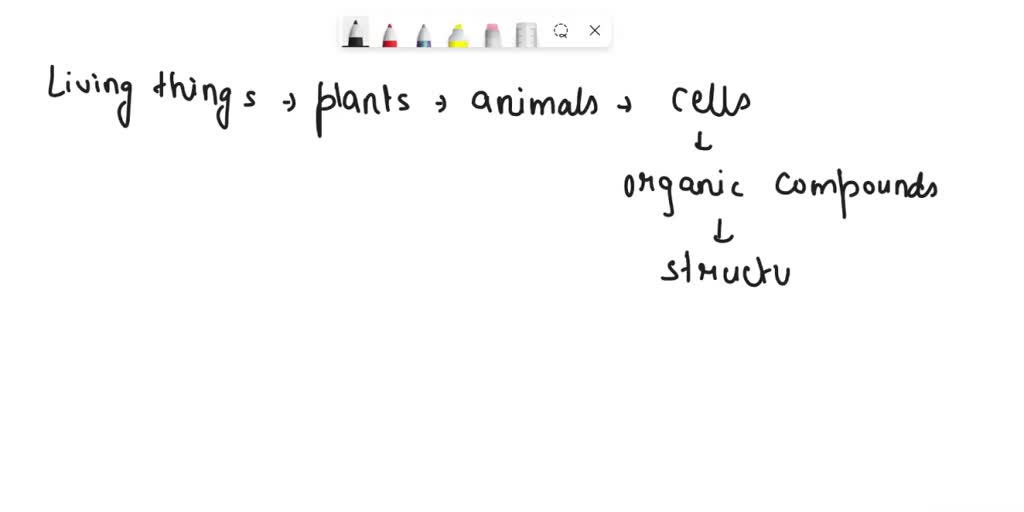 Living things → plants → animals → cells
↓
organic compounds
↓
structu